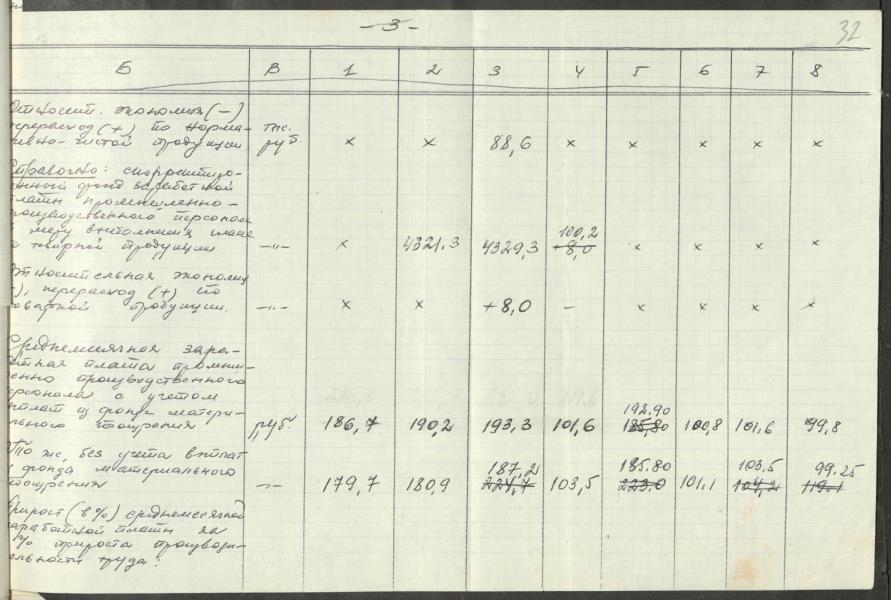 -3-
32
Б В 1 2 3 4 5 6 7 8
Относит. экономия (-)
перерасход (+) по норма- тыс.
тивно-чистой продукции руб. × × 88,6 × × × × ×
Справочно: скорректиро-
ванный фонд заработной
платы промышленно-
производственного персонала
в меру выполнения плана 100,2
по товарной продукции -"- × 4321.3 4329,3 8,0 × × × ×
Относительная экономия
(-), перерасход (+) по
товарной продукции. -"- × × +8,0 - × × × ×
Среднемесячная зара-
ботная плата промыш-
ленно производственного
персонала с учетом
выплат из фонда матери- 192.90
ального поощрения руб. 186,7 190,2 193,3 101,6 185,80 100,8 101,6 99,8
То же, без учета выплат
из фонда материального 187,2 185.80 103.5 99.25
поощрения -"- 179,7 180,9 224,7 103,5 223.0 101.1 104,2 119.1
Прирост (в %) среднемесячной
заработной платы за
1% прироста производи-
тельности труда: